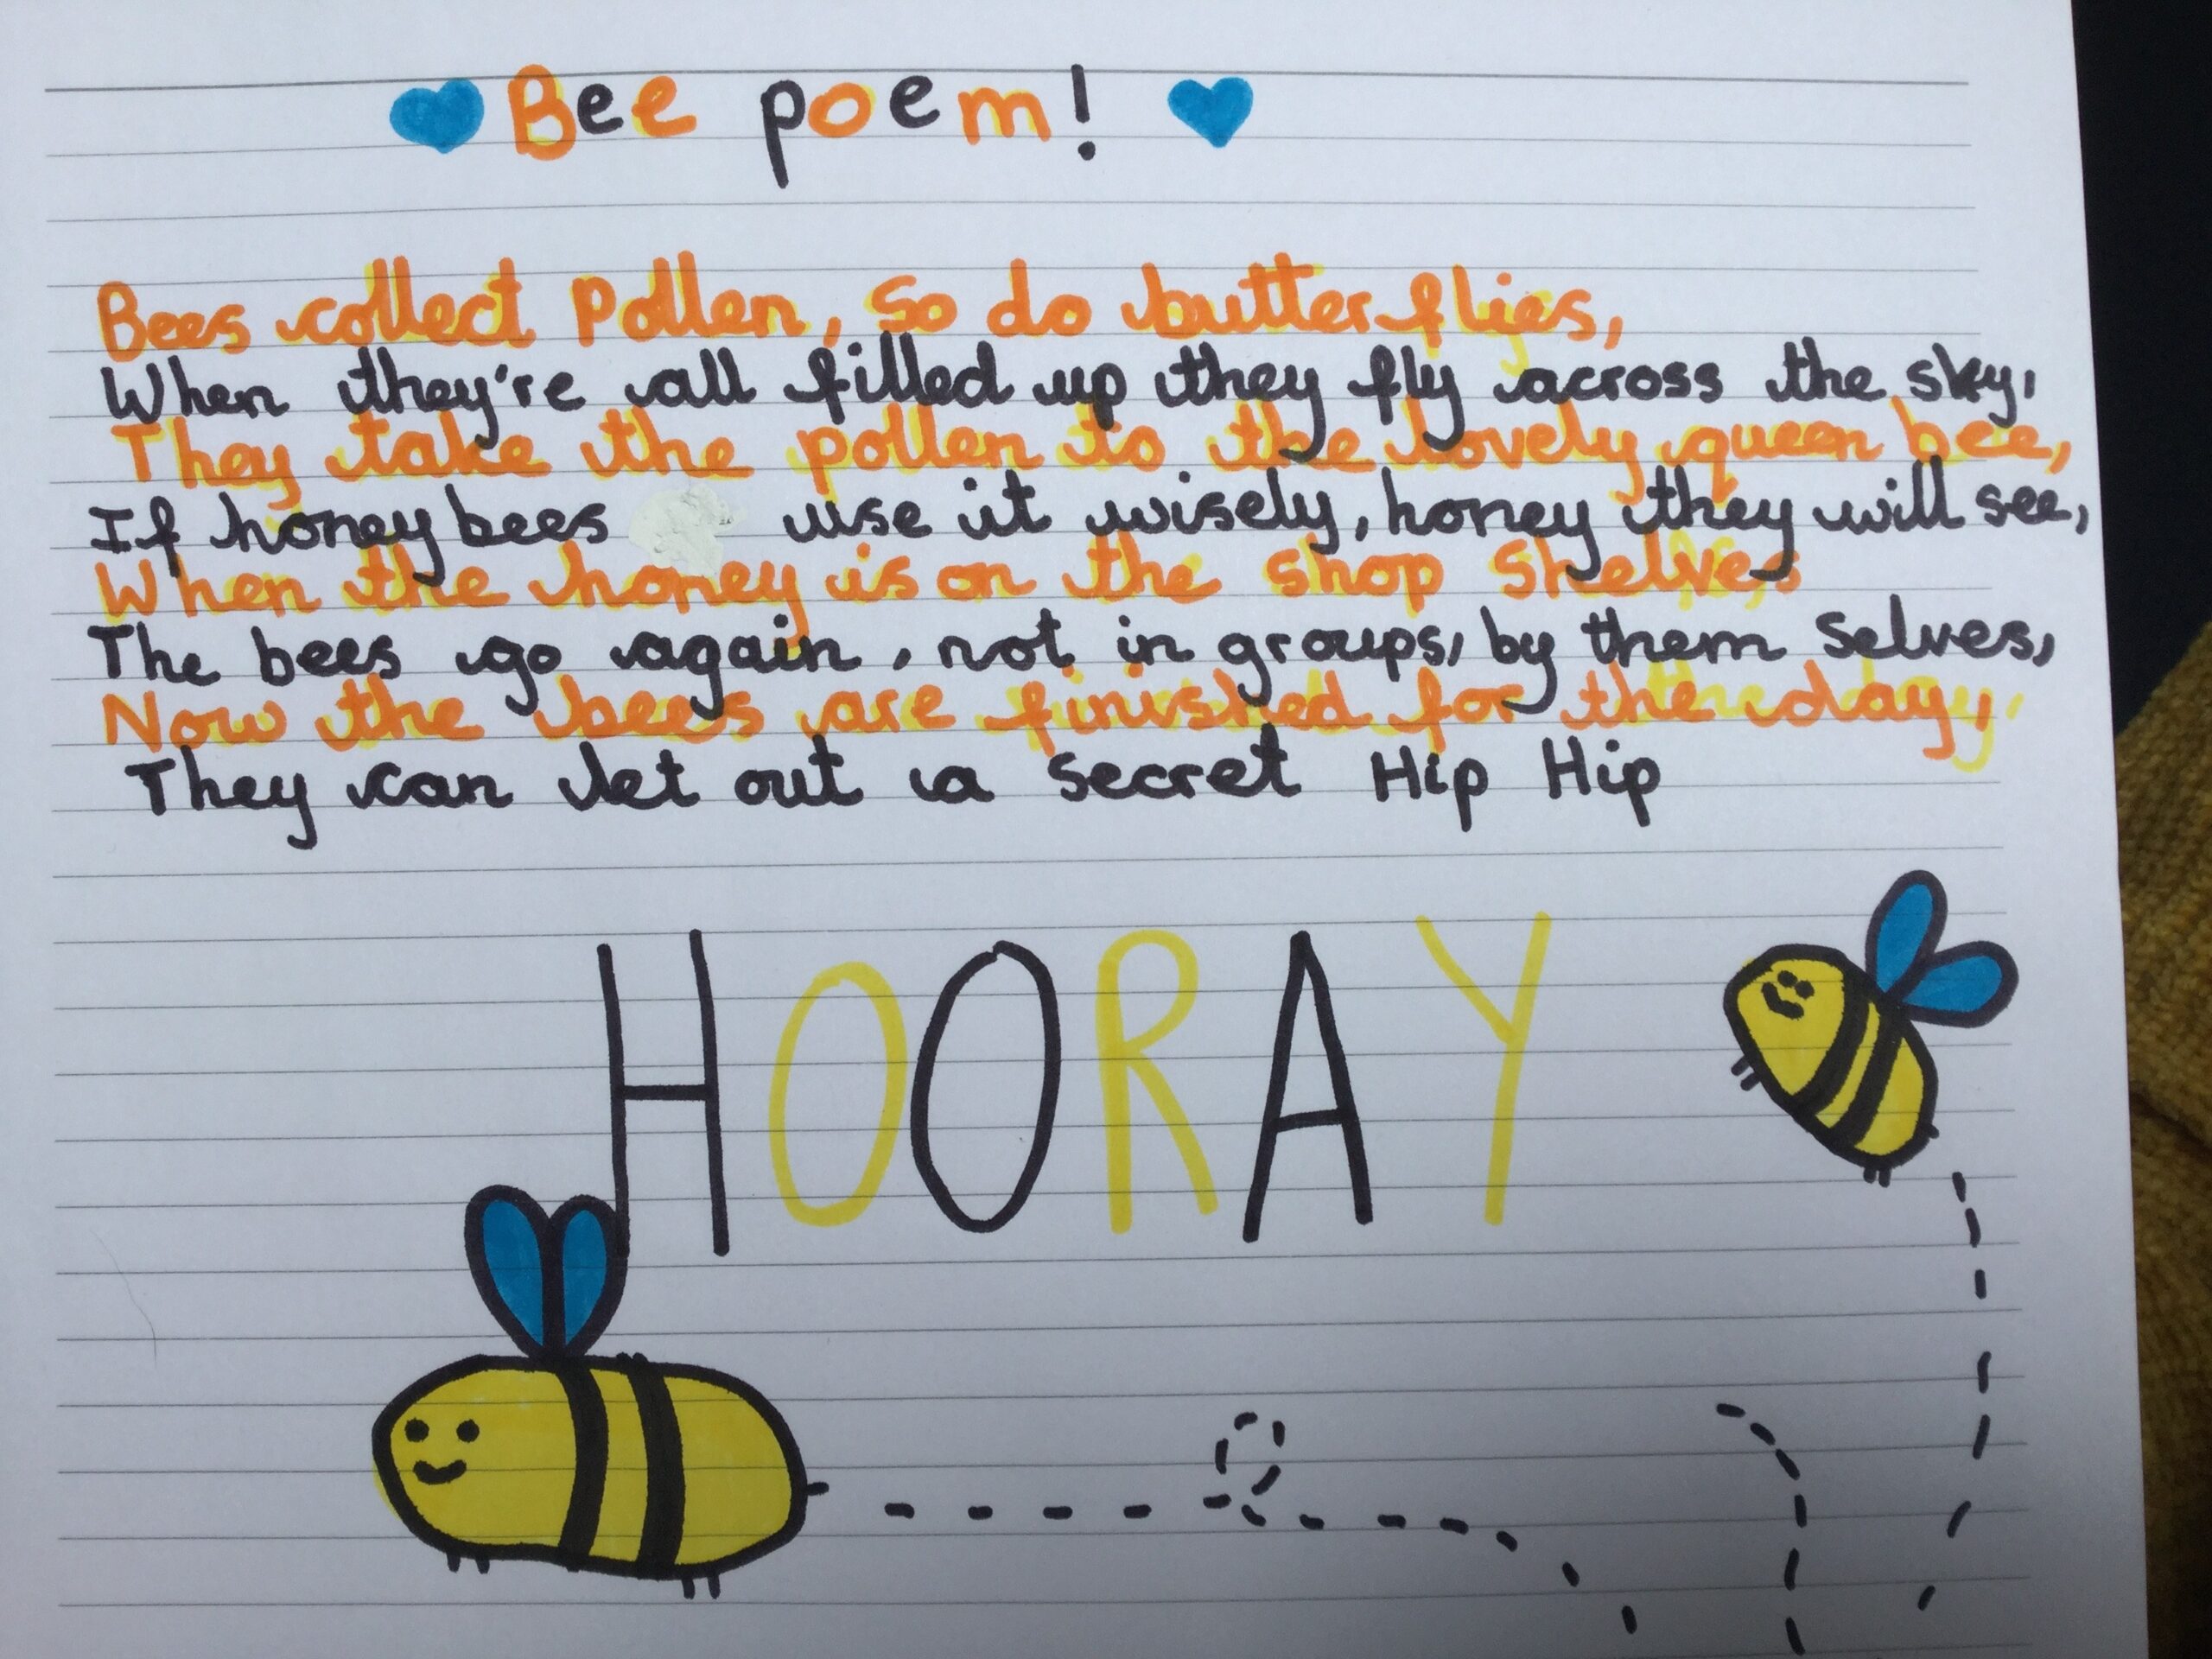 Bee poem!
Bees collect Pollen, so do butterflies,
When they're all filled up they fly across the sky,
They take the pollen to the lovely queen bee,
If honey bees use it wisely, honey they will see,
When the honey is on the shop shelves
The bees go again, not in groups, by them selves,
Now the bees are finished for the day,
They can let out a secret Hip Hip
HOORAY